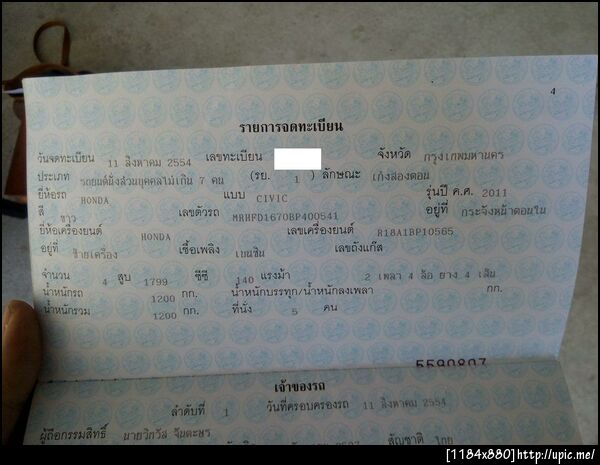 4
รายการจดทะเบียน
วันจดทะเบียน 11 สิงหาคม 2554 เลขทะเบียน จังหวัด กรุงเทพมหานคร
ประเภท รถยนต์นั่งส่วนบุคคลไม่เกิน 7 คน (รย. 1 ) ลักษณะ เก๋งสองตอน
ยี่ห้อรถ HONDA แบบ CIVIC รุ่นปี ค.ศ. 2011
สี ขาว เลขตัวรถ MRHFD1670BP400541 อยู่ที่ กระจังหน้าตอนใน
ยี่ห้อเครื่องยนต์ HONDA เลขเครื่องยนต์ R18A1BP10565
อยู่ที่ ซ้ายเครื่อง เชื้อเพลิง เบนซิน เลขถังแก๊ส
จำนวน 4 สูบ 1799 ซีซี 140 แรงม้า 2 เพลา 4 ล้อ ยาง 4 เส้น
น้ำหนักรถ 1200 กก. น้ำหนักบรรทุก/น้ำหนักลงเพลา กก.
น้ำหนักรวม 1200 กก. ที่นั่ง 5 คน
5590807
เจ้าของรถ
ลำดับที่ 1 วันที่ครอบครองรถ 11 สิงหาคม 2554
ผู้ถือกรรมสิทธิ์ นายวิภวัส สัญชาติ ไทย
[1184x880]http://upic.me/